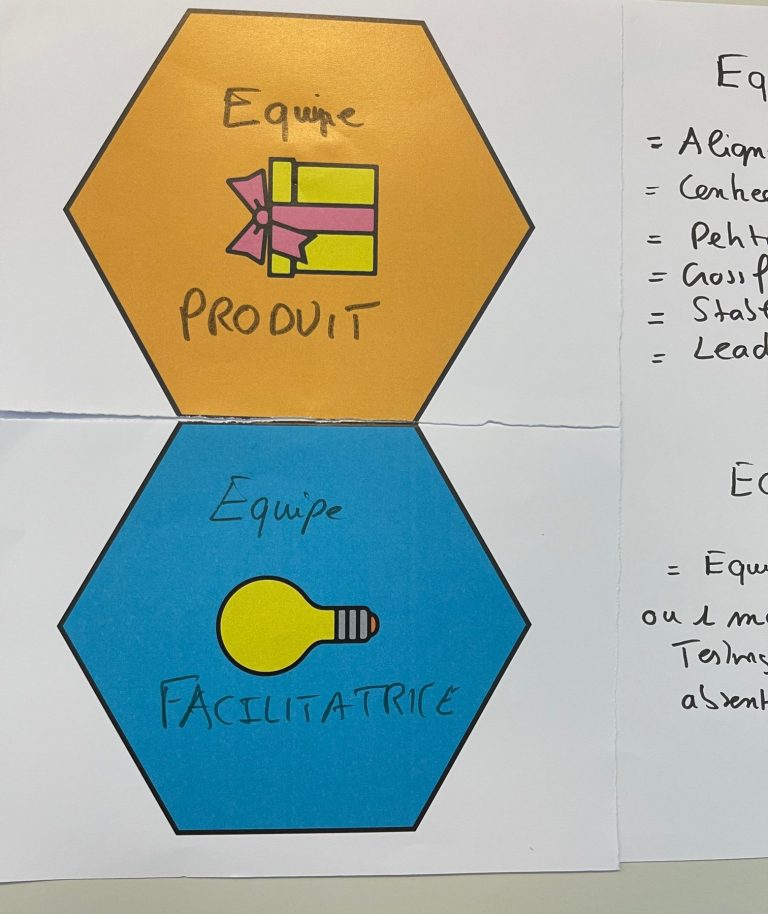 Equipe
PRODUIT
Equipe
FACILITATRICE
Eq
= Align
= Centre
= Petit
= Cross f
= Stab
= Lead
Eq
= Equi
ou 1 m
Testing
absent